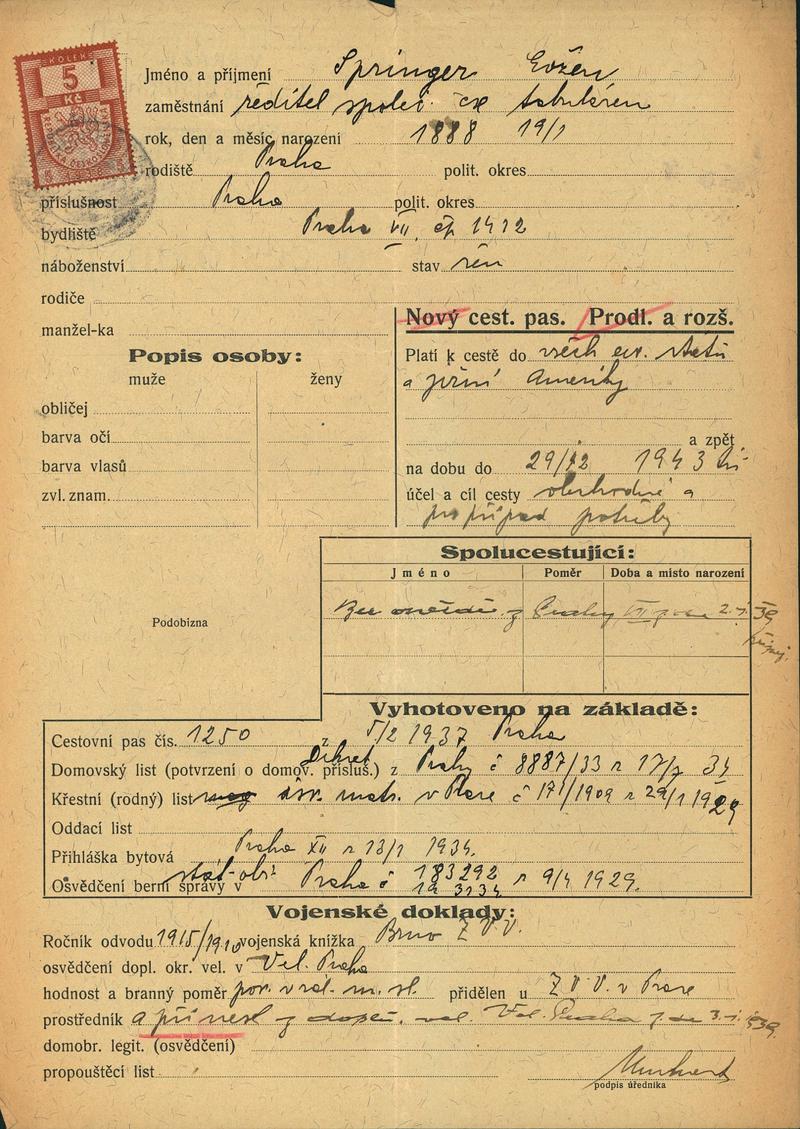 KOLEK
5
Kč
Jméno a příjmení Springer Evžen
zaměstnání ředitel společ.
rok, den a měsíc narození 1888 19/1
rodiště Praha polit. okres
příslušnost Praha polit. okres
bydliště Praha VII, čp 1412
náboženství stav žen
rodiče
manžel-ka
Nový cest. pas. Prodl. a rozš.
Popis osoby:
muže ženy
Platí k cestě do všech ev. států
a jižní Ameriky
obličej
barva očí
a zpět
barva vlasů
na dobu do 29/12 1943
zvl. znam.
účel a cíl cesty obchodně a
pro případ potřeby
Spolucestující:
Jméno Poměr Doba a místo narození
Podobizna
Vyhotoveno na základě:
Cestovní pas čís. 1250 z 5/2 1937 Praha
Dekret
Domovský list (potvrzení o domov. přísluš.) z Prahy č 8887/33 z 17/7 34
Křestní (rodný) list matr. v Praze č 171/1909 z 29/1 1929
Oddací list
Přihláška bytová Praha XII z 13/1 1934.
stát. obč.
Osvědčení berní správy v Praha č 183292 z 9/4 1929.
Vojenské doklady:
Ročník odvodu 1915/1910 vojenská knížka Brno Z V V.
osvědčení dopl. okr. vel. v Vel. Praha
hodnost a branný poměr por. v zál. přidělen u Z V V. v Praze
prostředník a přinesl z dopln. vel. Vel. Praha
domobr. legit. (osvědčení)
propouštěcí list
podpis úředníka